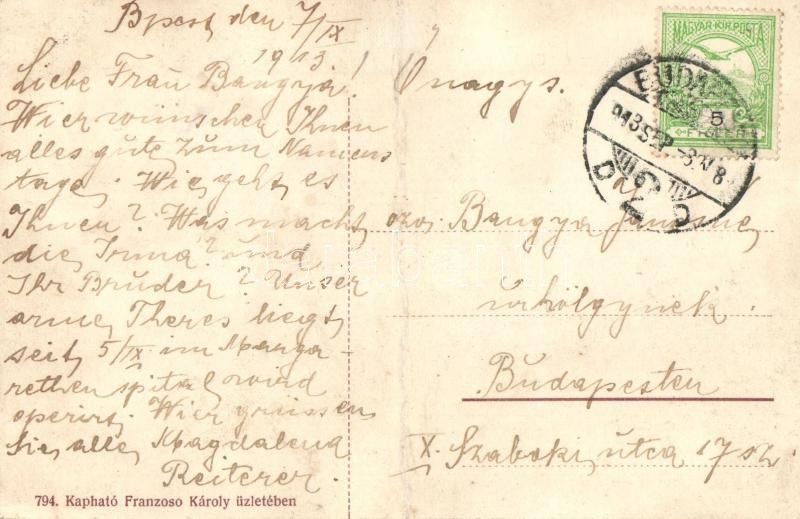 Bpest den 7/IX
1913.
Liebe Frau Bangya!
Wier wünschen Ihnen
alles gute zum Namens
tage. Wie geht es
Ihnen? Was macht
die Irma? und
Ihr Bruder? Unser
arme Theres liegt
seit 5/IX im Marga-
rethen spital wird
operirt. Wier grüssen
Sie alle Magdalena
Reiterer.
794. Kapható Franzoso Károly üzletében
Önagys.
özv. Bangya Jánosné
úrhölgynek
Budapesten
X. Szabóki útca 17 sz.
MAGYAR KIR. POSTA
5
FILLÉR
BUDAPEST
913 SEP -8